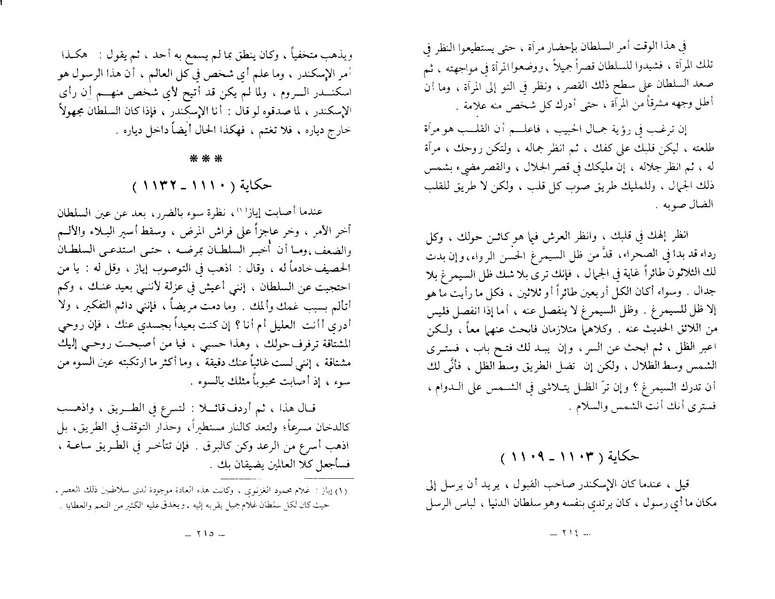 في هذا الوقت أمر السلطان بإحضار مرآة ، حتى يستطيعوا النظر في
تلك المرآة ، فشيدوا للسلطان قصراً جميلاً ، ووضعوا المرآة في مواجهته ، ثم
صعد السلطان على سطح ذلك القصر ، ونظر في التو إلى المرآة ، وما أن
أطل وجهه مشرقاً من المرآة ، حتى أدرك كل شخص منه علامة .
إن ترغب في رؤية جمال الحبيب ، فاعلم أن القلب هو مرآة
طلعته ، ليكن قلبك على كفك ، ثم انظر جماله ، ولتكن روحك ، مرآة
له ، ثم انظر جلاله ، إن مليكك في قصر الجلال ، والقصر مضيء بشمس
ذلك الجمال ، وللمليك طريق صوب كل قلب ، ولكن لا طريق للقلب
الضال صوبه .
انظر إلهك في قلبك ، وانظر العرش فيما هو كائن حولك ، وكل
رداء قد بدا في الصحراء ، قدَّ من ظل السيمرغ الحسن الرواء ، وإن بدت
لك الثلاثون طائراً غاية في الجمال ، فإنك ترى بلا شك ظل السيمرغ بلا
جدال . وسواء أكان الكل أربعين طائراً أو ثلاثين ، فكل ما رأيت ما هو
إلا ظل للسيمرغ . وظل السيمرغ لا ينفصل عنه ، أما إذا انفصل فليس
من اللائق الحديث عنه . وكلاهما متلازمان فابحث عنهما معاً ، ولكن
اعبر الظل ، ثم ابحث عن السر ، وإن يبد لك فتح باب ، فسترى
الشمس وسط الظلال ، ولكن إن تضل الطريق وسط الظل ، فأنَّى لك
أن تدرك السيمرغ ؟ وإن ترَ الظل يتلاشى في الشمس على الدوام ،
فسترى أنك أنت الشمس والسلام .
حكاية ( ١١٠٣ - ١١٠٩ )
قيل ، عندما كان الإسكندر صاحب القبول ، يريد أن يرسل إلى
مكان ما أي رسول ، كان يرتدي بنفسه وهو سلطان الدنيا ، لباس الرسل
– ٢١٤ –
ويذهب متخفياً ، وكان ينطق بما لم يسمع به أحد ، ثم يقول : هكذا
أمر الإسكندر ، وما علم أي شخص في كل العالم ، أن هذا الرسول هو
اسكندر الروم ، ولما لم يكن قد أتيح لأي شخص منهم أن رأى
الإسكندر ، لما صدقوه لو قال : أنا الإسكندر ، فإذا كان السلطان مجهولاً
خارج دياره ، فلا تغتم ، فهكذا الحال أيضاً داخل دياره .
***
حكاية ( ١١١٠ - ١١٣٢ )
عندما أصابت إياز (١) ، نظرة سوء بالضرر ، بعد عن عين السلطان
آخر الأمر ، وخر عاجزاً على فراش المرض ، وسقط أسير البلاء والألم
والضعف ، وما أن أُخبر السلطان بمرضه ، حتى استدعى السلطان
الحصيف خادماً له ، وقال : اذهب في التو صوب إياز ، وقل له : يا من
احتجبت عن السلطان ، إنني أعيش في عزلة لأنني بعيد عنك ، وكم
أتألم بسبب غمك وألمك . وما دمت مريضاً ، فإنني دائم التفكير ، ولا
أدري أأنت العليل أم أنا ؟ إن كنت بعيداً بجسدي عنك ، فإن روحي
المشتاقة ترفرف حولك ، وهذا حسبي ، فيا من أصبحت روحي إليك
مشتاقة ، إنني لست غائباً عنك دقيقة ، وما أكثر ما ارتكبته عين السوء من
سوء ، إذ أصابت محبوباً مثلك بالسوء .
قال هذا ، ثم أردف قائلا : لتسرع في الطريق ، واذهب
كالدخان مسرعاً ؛ ولتعد كالنار مستطيراً ، وحذار التوقف في الطريق ، بل
اذهب أسرع من الرعد وكن كالبرق . فإن تتأخر في الطريق ساعة ،
فسأجعل كلا العالمين يضيقان بك .
(١) إياز : غلام محمود الغزنوي ، وكانت هذه العادة موجودة لدى سلاطين ذلك العصر ،
حيث كان لكل سلطان غلام جميل يقربه إليه ، ويغدق عليه الكثير من النعم والعطايا .
– ٢١٥ –